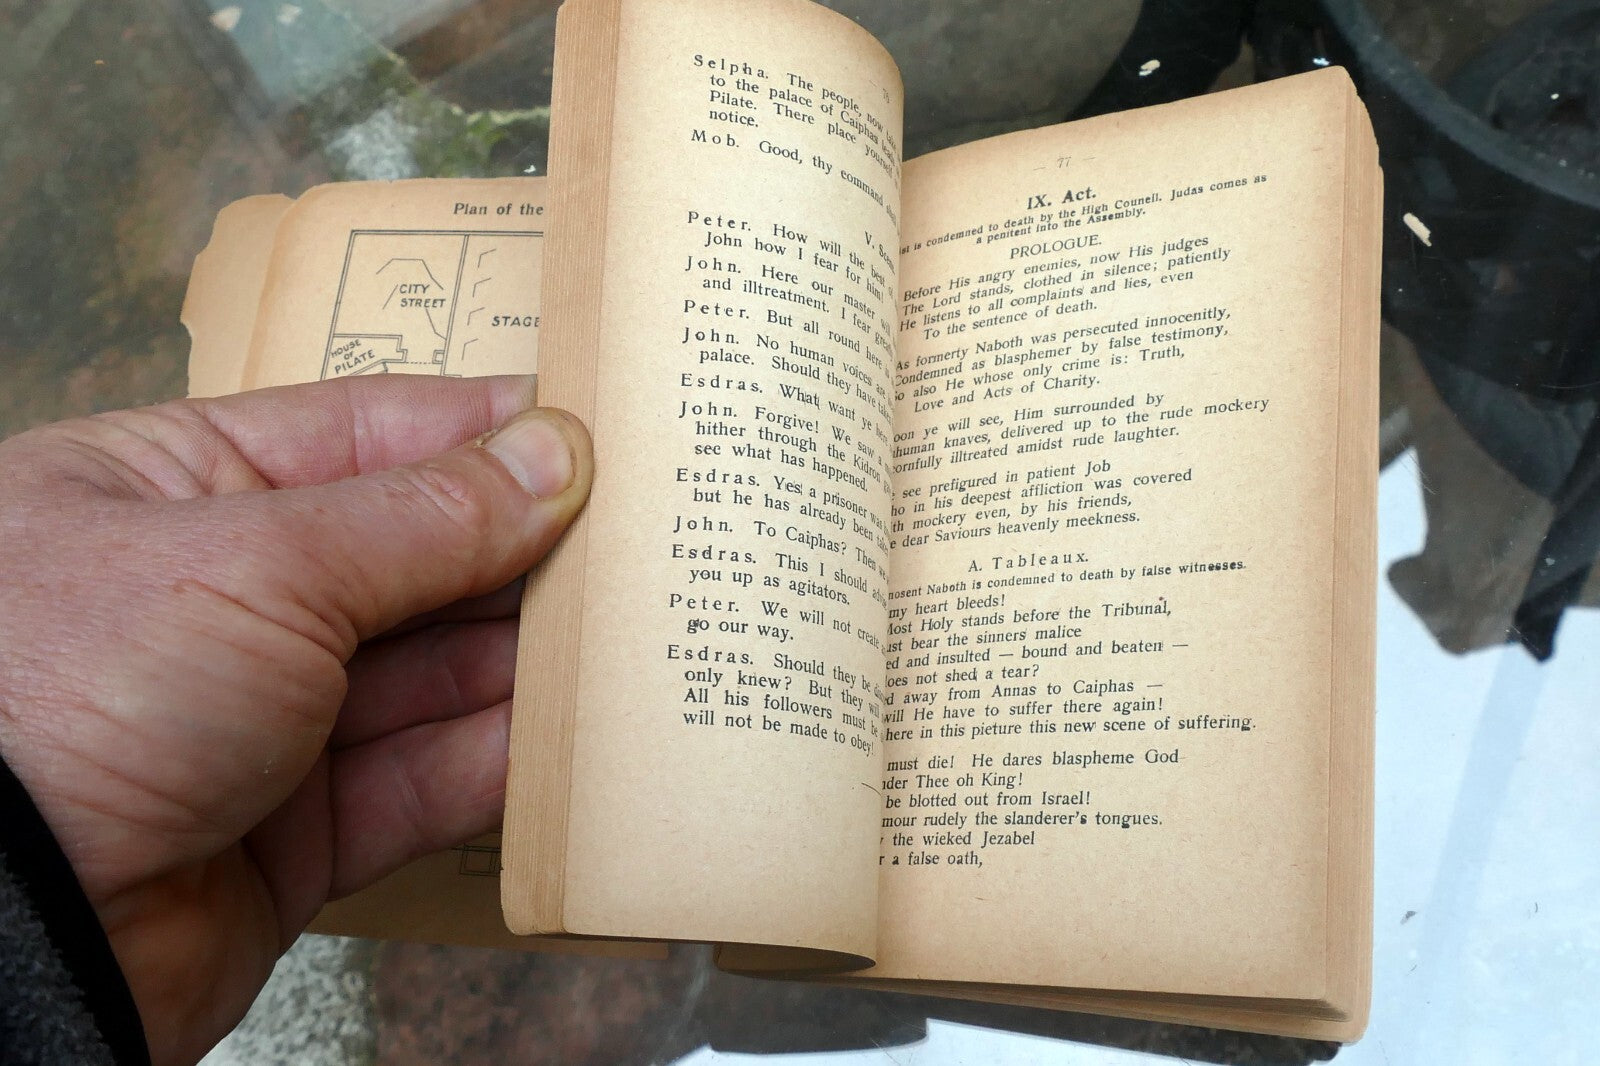 Plan of the
CITY
STREET
STAGE
HOUSE
OF
PILATE
— 76
Selpha. The people, now take
to the palace of Caiphas
Pilate. There place yourself
notice.
Mob. Good, thy command
V. Scene.
Peter. How will the best of
John how I fear for him!
John. Here our master will
and illtreatment. I fear greatly
Peter. But all round here is
John. No human voices are
palace. Should they have taken
Esdras. What want ye here
John. Forgive! We saw a
hither through the Kidron
see what has happened.
Esdras. Yes, a prisoner was
but he has already been
John. To Caiphas? Then we
Esdras. This I should
you up as agitators.
Peter. We will not create
go our way.
Esdras. Should they be
only knew? But they will
All his followers must be
will not be made to obey!
— 77 —
IX. Act.
is condemned to death by the High Couneil. Judas comes as
a penitent into the Assembly.
PROLOGUE.
Before His angry enemies, now His judges
The Lord stands, clothed in silence; patiently
He listens to all complaints and lies, even
To the sentence of death.
As formerty Naboth was persecuted innocenitly,
Condemned as blasphemer by false testimony,
So also He whose only crime is: Truth,
Love and Acts of Charity.
ye will see, Him surrounded by
knaves, delivered up to the rude mockery
illtreated amidst rude laughter.
see prefigured in patient Job
in his deepest affliction was covered
mockery even, by his friends,
dear Saviours heavenly meekness.
A. Tableaux.
Naboth is condemned to death by false witnesses.
my heart bleeds!
Most Holy stands before the Tribunal,
bear the sinners' malice
and insulted — bound and beaten —
does not shed a tear?
away from Annas to Caiphas —
will He have to suffer there again!
here in this picture this new scene of suffering.
must die! He dares blaspheme God
Thee oh King!
be blotted out from Israel!
rudely the slanderer's tongues.
the wieked Jezabel
a false oath,